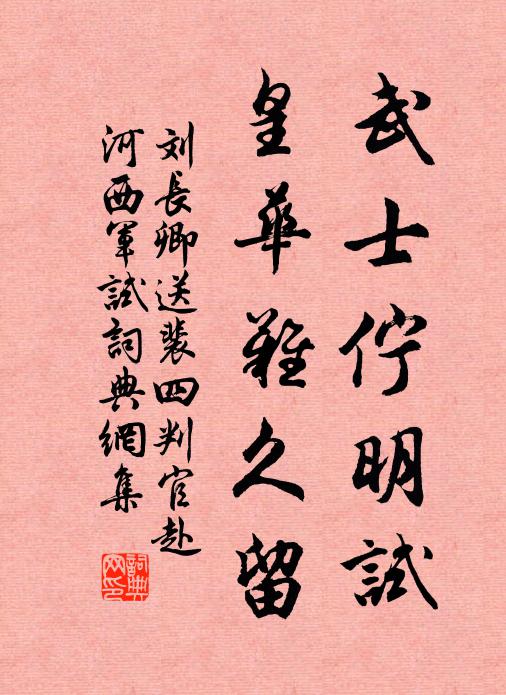 武士佇明試
皇華難久留
刘長卿送裴四判官赴
河西軍試詞典網集
詞典
网印